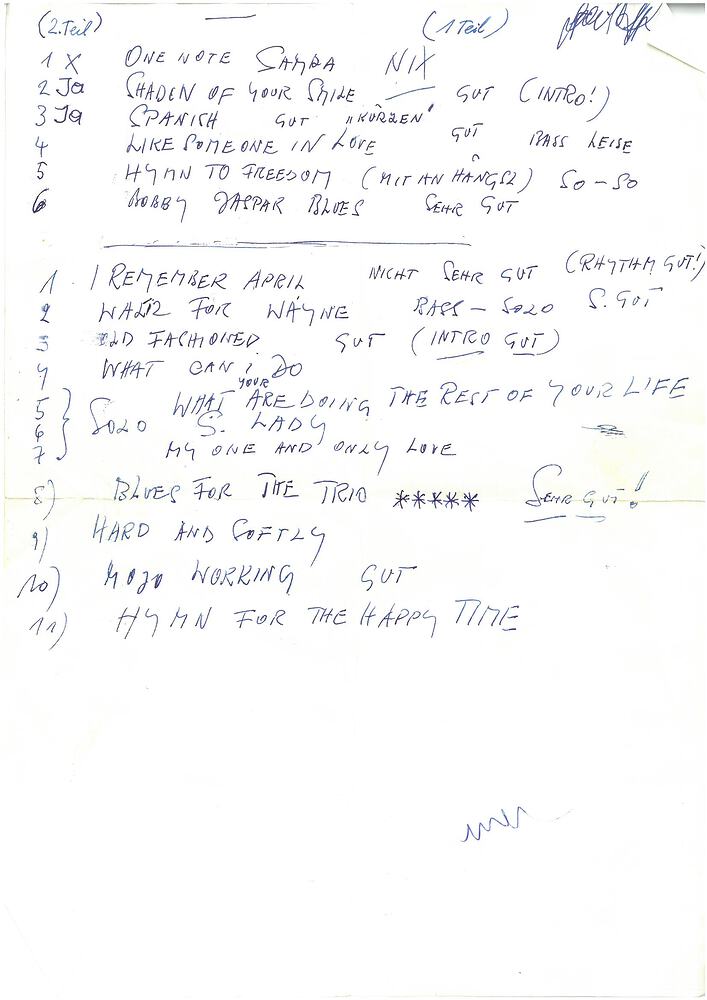 (2.Teil) (1 Teil)
1 X ONE NOTE SAMBA NIX
2 Ja SHADEN OF YOUR SMILE — GUT (INTRO!)
3 Ja SPANISH GUT „KÜRZEN"
4 LIKE SOMEONE IN LOVE GUT BASS LEISE
5 HYMN TO FREEDOM (MIT ANHÄNGSL) SO-SO
6 BOBBY JASPAR BLUES SEHR GUT
1 I REMEMBER APRIL NICHT SEHR GUT (RHYTHM GUT!)
2 WALTZ FOR WAYNE BASS-SOLO S. GUT
3 OLD FASHIONED GUT (INTRO GUT)
4 WHAT CAN I DO
5 WHAT ARE YOUR DOING THE REST OF YOUR LIFE
6 SOLO S. LADY
7 MY ONE AND ONLY LOVE
8) BLUES FOR THE TRIO ***** SEHR GUT!
9) HARD AND SOFTLY
10) MOJO WORKING GUT
11) HYMN FOR THE HAPPY TIME